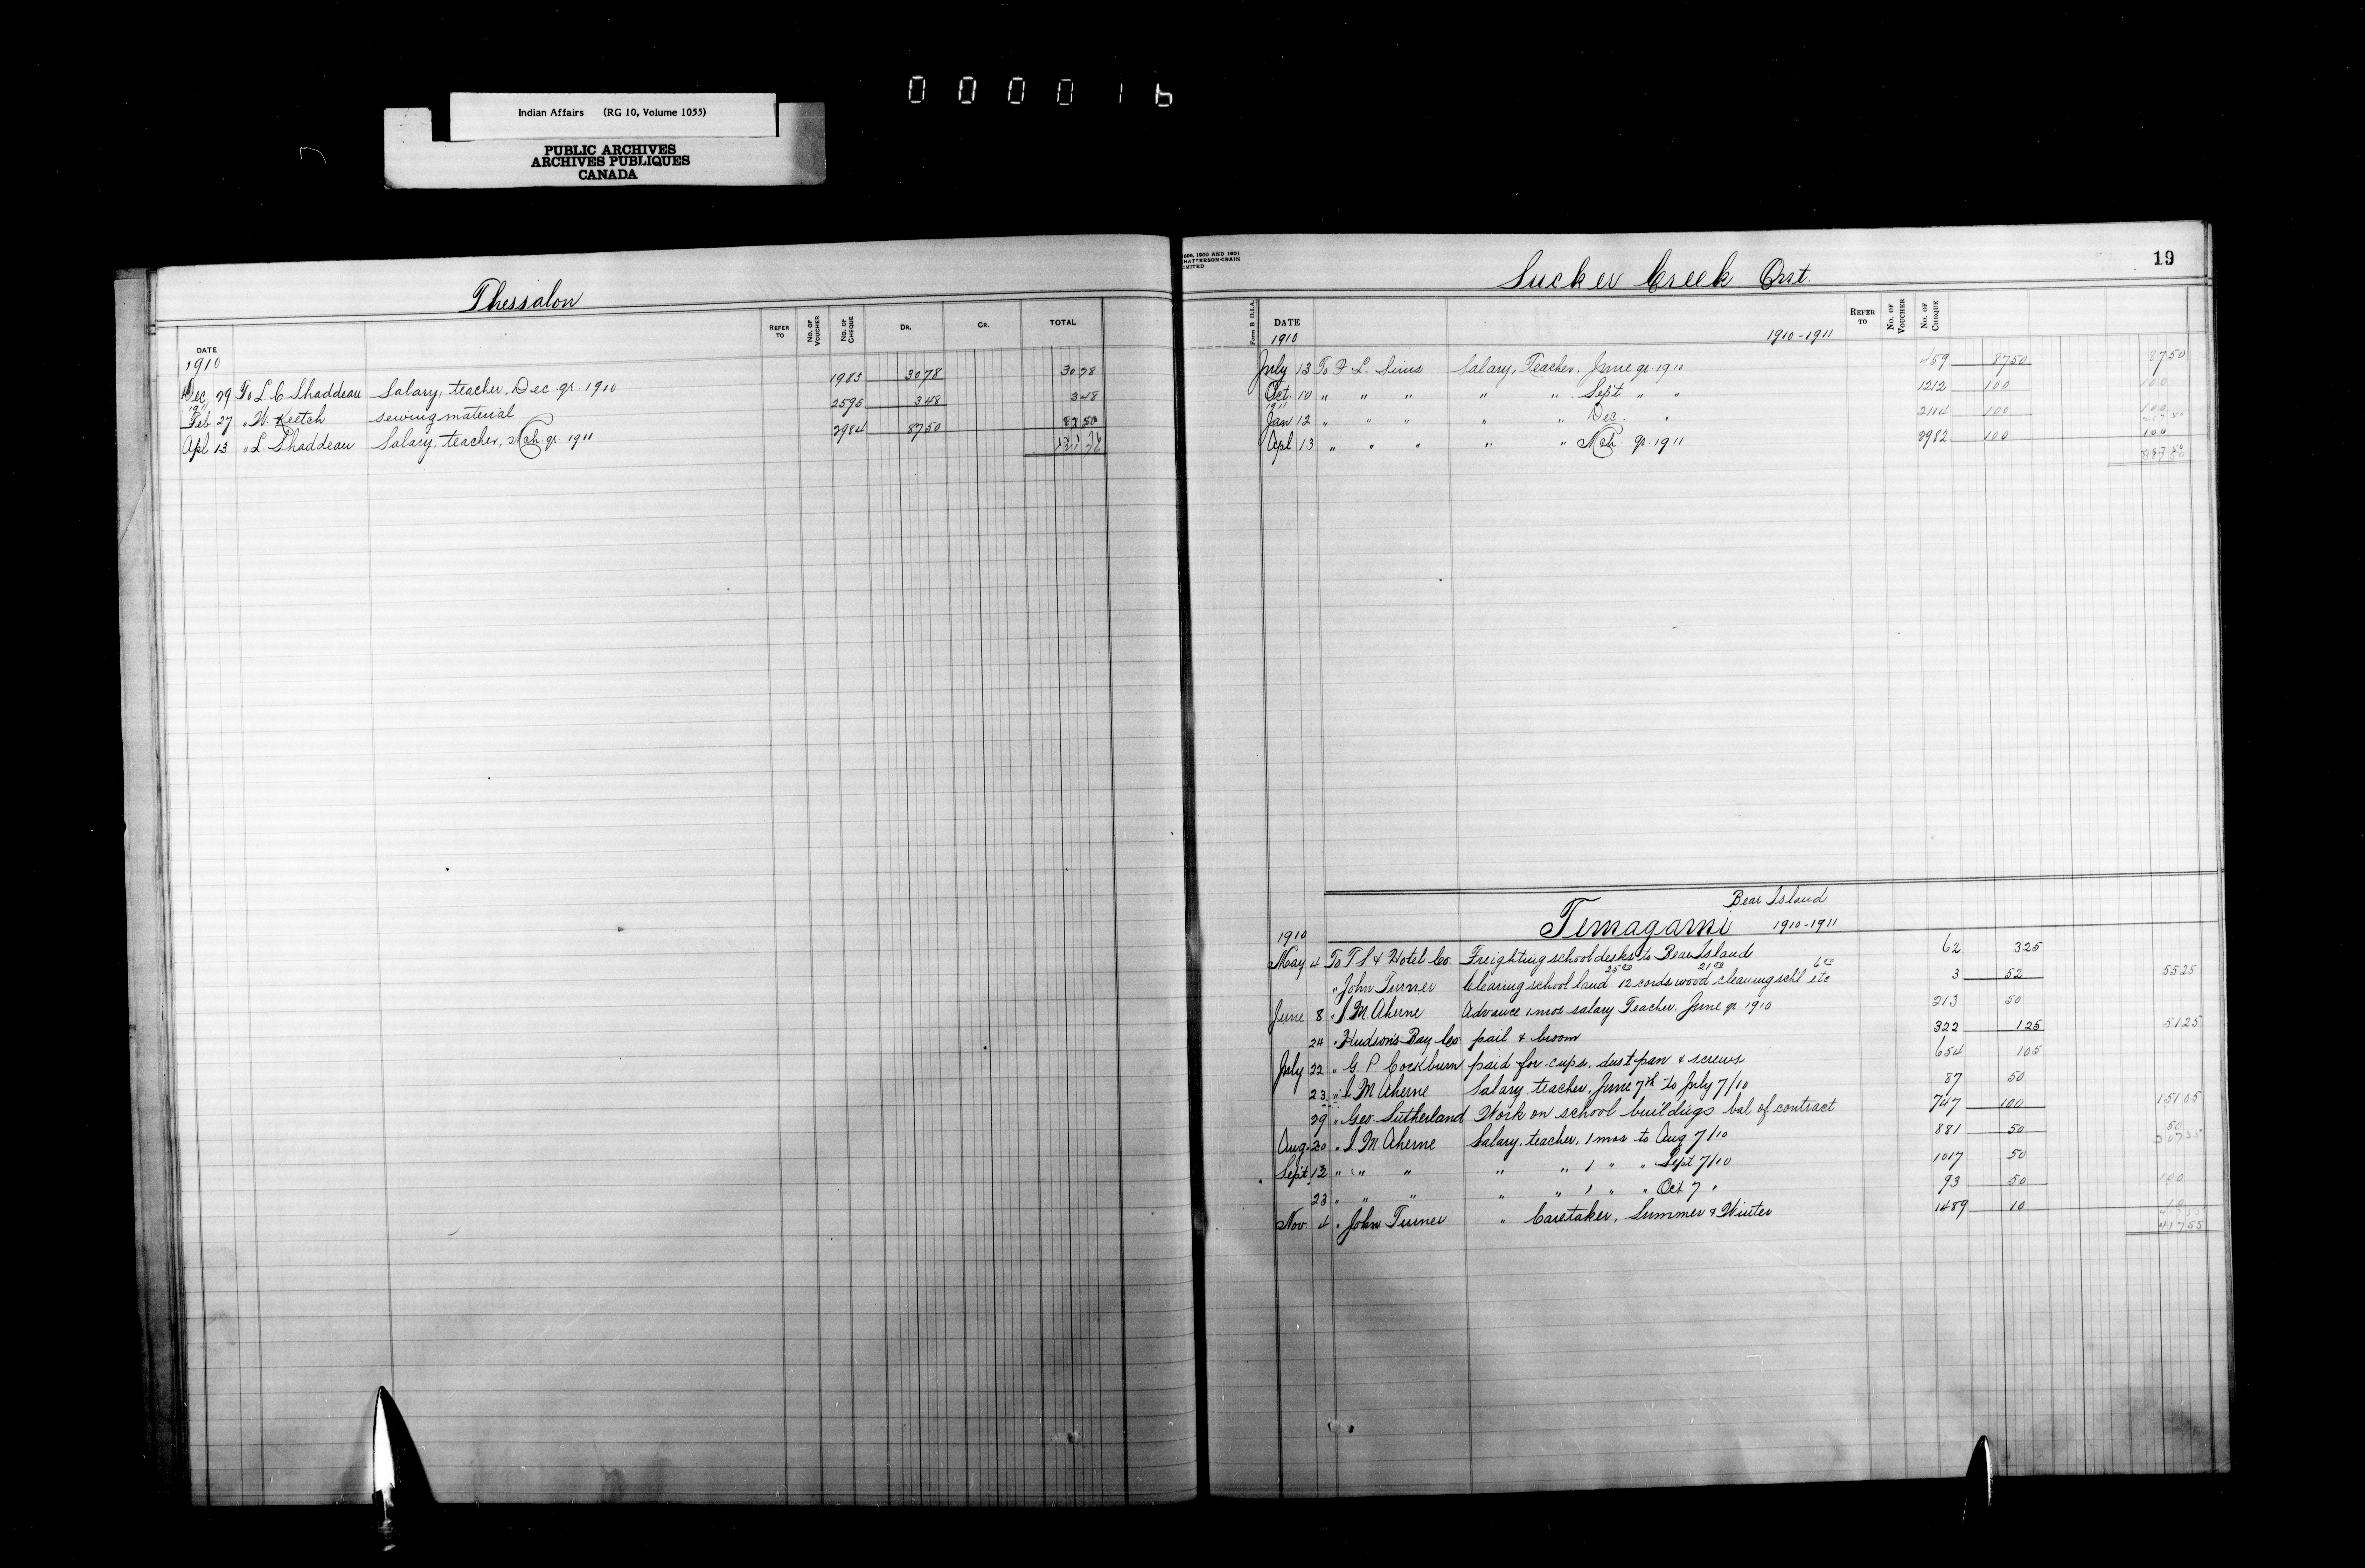 000016
Indian Affairs (RG 10, Volume 1055)
PUBLIC ARCHIVES
ARCHIVES PUBLIQUES
CANADA
Thessalon
DATE REFER TO NO. OF VOUCHER NO. OF CHEQUE DR. CR. TOTAL
1910
Dec 29 To L. C Shaddeau Salary, teacher, Dec qr 1910 1983 3078 3078
1911
Feb 27 " W. Keetch sewing material 2595 348 348
Apl 13 " L. Shaddeau Salary, teacher, Mch qr 1911 2984 8750 8750
121 76
1898, 1900 AND 1901
CHATTERSON-CRAIN
LIMITED
Sucker Creek Ont.
19
Form B D.I.A. DATE REFER TO NO. OF VOUCHER NO. OF CHEQUE
1910 1910-1911
July 13 To P L. Sims Salary, Teacher, June qr 1910 459 8750 8750
Oct. 10 " " " " " Sept " " 1212 100 100
1911
Jan 12 " " " " " Dec. " 2114 100 100
Apl 13 " " " " " Mch. qr. 1911 2982 100 100
387 50
Bear Island
Temagami 1910-1911
1910
May 4 To T. S & Hotel Co. Freighting school desks to Bear Island 62 325
25 00 21 00 6 00
" John Turner Clearing school land 12 cords wood cleaning schl etc 3 52 5525
June 8 " J. M. Aherne Advance 1 mos salary Teacher, June qr 1910 213 50
24 " Hudson's Bay Co pail & broom 322 125 5125
July 22 " G. P Cockburn paid for cups, dust pan & screws 654 105
23 " J M Aherne Salary, teacher, June 7th to July 7/10 87 50
29 " Geo. Sutherland Work on school buildigs bal of contract 747 100 15105
Aug. 20 " J. M. Aherne Salary, teacher, 1 mos to Aug 7/10 881 50 50
Sept 12 " " " " " 1 " " Sept 7/10 1017 50
23 " " " " " 1 " " Oct 7 " 93 50 100
Nov. 4 " John Turner " Caretaker, Summer & Winter 1489 10 10
41755